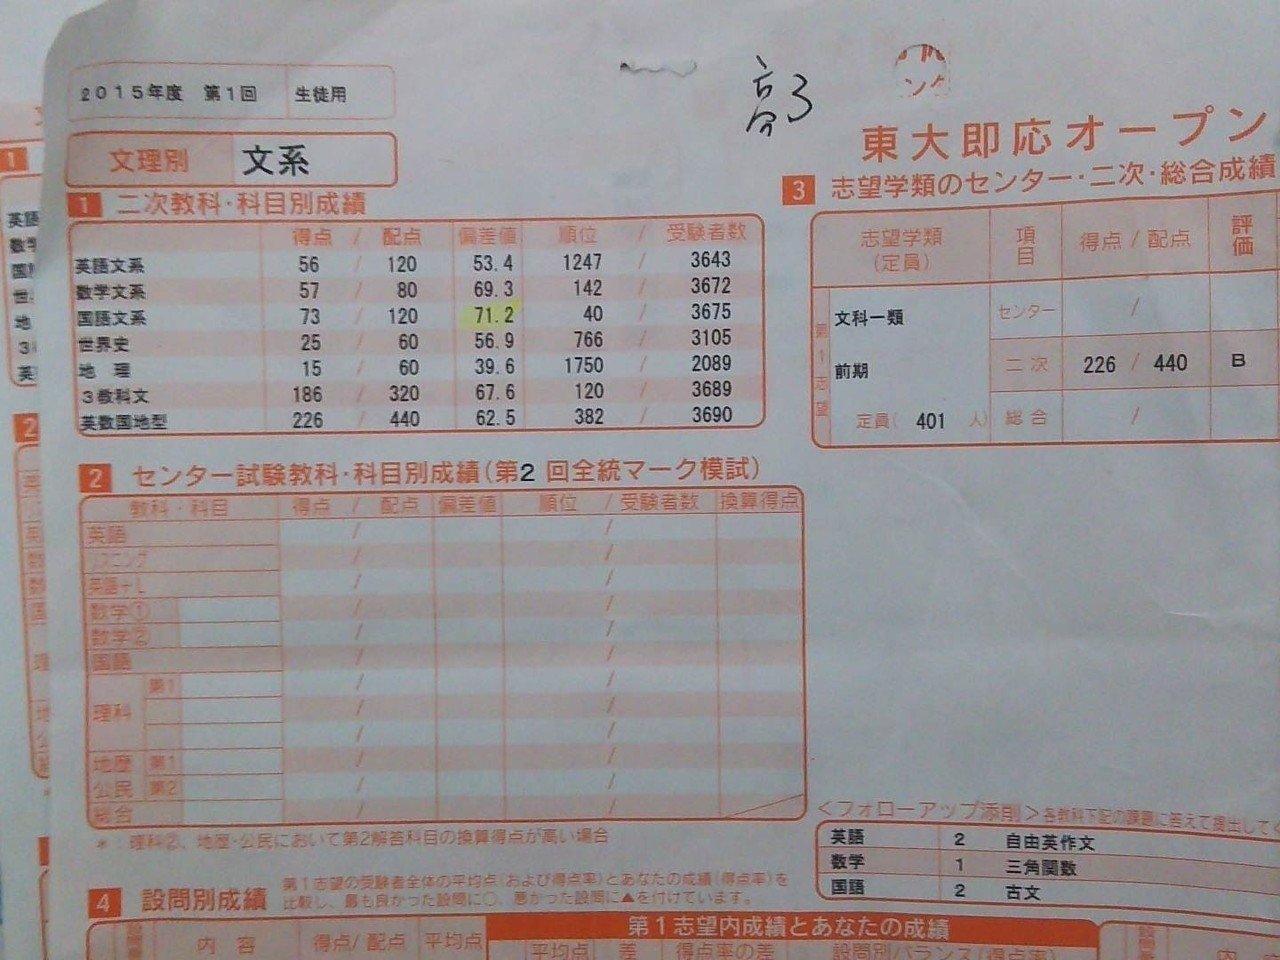 2015年度 第1回 生徒用
高3
東大即応オープン
文理別 文系
1 二次教科・科目別成績
得点 / 配点 偏差値 順位 / 受験者数
英語文系 56 / 120 53.4 1247 / 3643
数学文系 57 / 80 69.3 142 / 3672
国語文系 73 / 120 71.2 40 / 3675
世界史 25 / 60 56.9 766 / 3105
地理 15 / 60 39.6 1750 / 2089
3教科文 186 / 320 67.6 120 / 3689
英数国地型 226 / 440 62.5 382 / 3690
3 志望学類のセンター・二次・総合成績
志望学類(定員) 項目 得点 / 配点 評価
第1志望
文科一類 センター /
前期 二次 226 / 440 B
定員( 401 人) 総合 /
2 センター試験教科・科目別成績(第2回全統マーク模試)
教科・科目 得点 / 配点 偏差値 順位 / 受験者数 換算得点
英語 / /
リスニング / /
英語+L / /
数学① / /
数学② / /
国語 / /
理科 第1 / /
/ /
/ /
地歴 第1 / /
公民 第2 / /
総合 / /
*:理科②、地歴・公民において第2解答科目の換算得点が高い場合
<フォローアップ添削>各教科下記の課題に答えて提出して
英語 2 自由英作文
数学 1 三角関数
国語 2 古文
4 設問別成績
第1志望の受験者全体の平均点(および得点率)とあなたの成績(得点率)を
比較し、最も良かった設問に○、悪かった設問に▲を付けています。
第1志望内成績とあなたの成績
内容 得点/配点 平均点 平均点 差 得点率の差 設問別バランス(得点率)